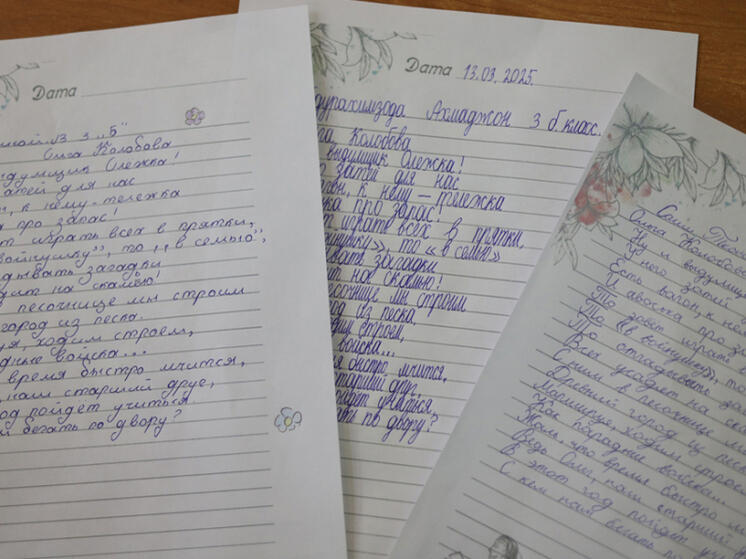 Дата
3 "Б"
Ольга Колобова
выдумщик Олежка!
затей для нас
к нему - тележка
про запас!
играть всех в прятки,
войнушку", то "в семью",
загадки
на скамью!
песочнице мы строим
город из песка.
ходим строем,
войска...
время быстро мчится,
наш старший друг,
год пойдёт учиться
бегать по двору?
Дата 13.03.2025.
Ахмаджон 3 б класс.
Колобова
выдумщик Олежка!
затей для нас
к нему — тележка
про запас!
играть всех в прятки,
то «в семью»
загадки
нас скамью!
песочнице мы строим
из песка,
строем,
войска...
быстро мчится,
старший друг,
учиться,
по двору?
Саши
Ольга Колобова
Ну и выдумщик
У него затей
Есть вагон, к нему
И авоська про за
То зовет играть в
То «в войнушку», то
То отгадывать за
Всех усадит на ска
С ним в песочнице мы
Древний город из песка
Маршируя, ходим строем
Как парадные войска
Жаль, что время быстро м
Ведь Олег, наш старший
В этот год пойдёт
С кем нам бегать